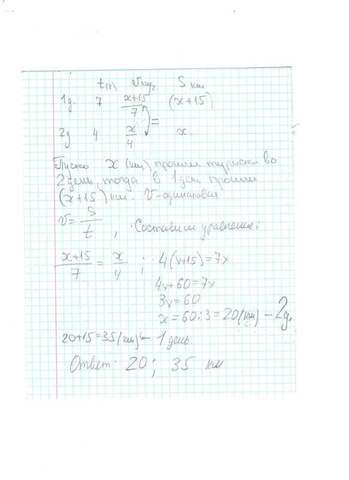 t(ч) V км/ч S км
1д. 7 x+15/7 (x+15)
=
2д 4 x/4 x
Пусть x (км) прошли туристы во
2 день, тогда в 1 день прошли
(x+15) км. V-одинаковая
V=S/t, Составим уравнение:
x+15/7 = x/4 ; 4(x+15)=7x
4x+60=7x
3x=60
x=60:3=20(км) – 2д.
20+15=35(км) – 1 день
Ответ: 20; 35 км